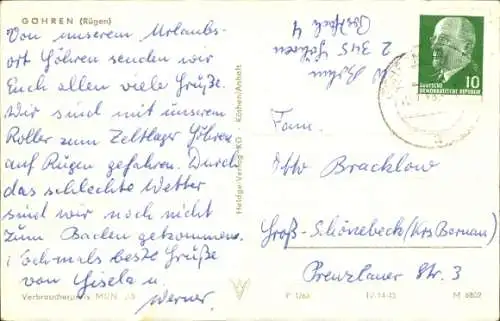 GÖHREN (Rügen)
Von unserem Urlaubs-
ort Göhren senden wir
Euch allen viele Grüße.
Wir sind mit unserem
Roller zum Zeltlager Göhren
auf Rügen gefahren. Durch
das schlechte Wetter
sind wir noch nicht
zum Baden gekommen.
Nochmals beste Grüße
von Gisela u.
Werner.
Verbraucherpreis MDN
Heldge-Verlag KG Köthen/Anhalt
2345 Göhren
Postfach 4
10
DEUTSCHE
DEMOKRATISCHE REPUBLIK
Fam.
Otto Bracklow
Groß-Schönebeck (Krs Bernau)
Prenzlauer Str. 3
M 6802